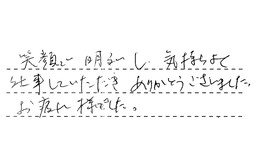 笑顔で明るいし、気持ちよく
仕事していただきありがとうございました。
お疲れ様でした。